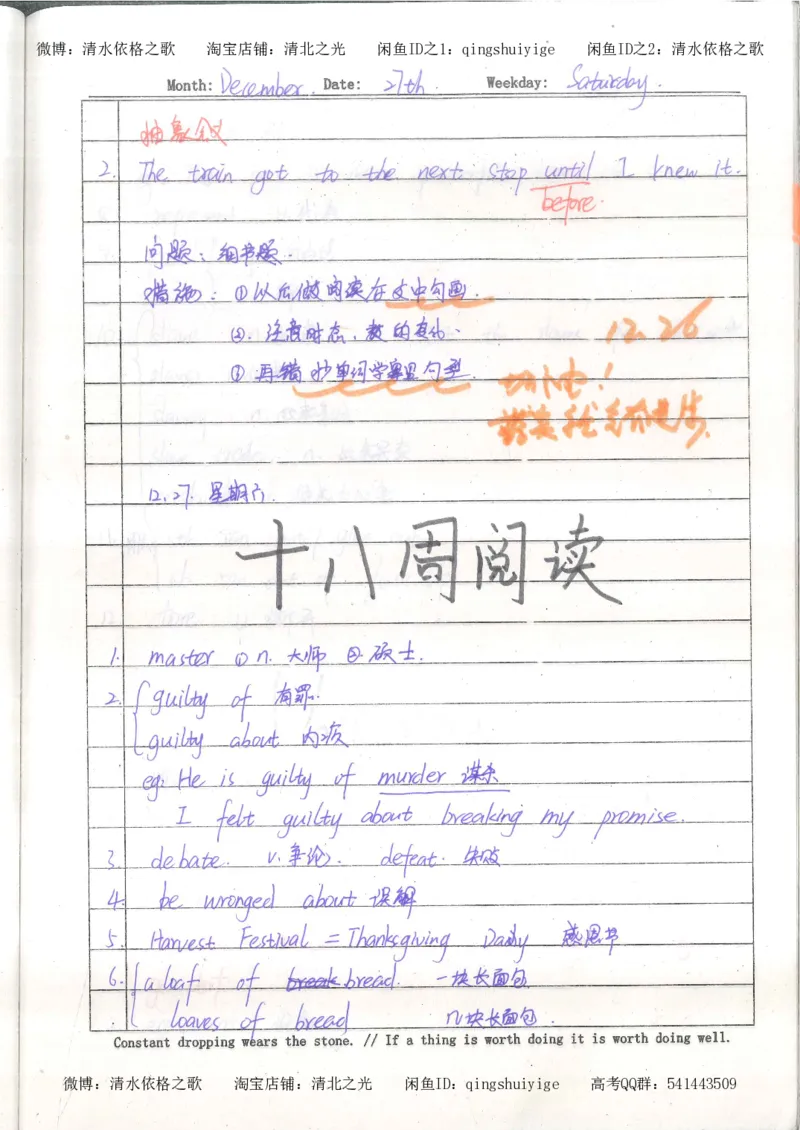 微博：清水依格之歌 淘宝店铺：清北之光 闲鱼ID之1：qingshuiyige 闲鱼ID之2：清水依格之歌
Month: December Date: 27th Weekday: Saturday.
抽象会议
2. The train got to the next stop until I knew it.
before.
问题：细节题.
措施：①以后做阅读在文中勾画.
②.注意时态，数的变化.
③再错抄单词学案里句型.
12.26
12.27. 星期六.
十八周阅读
1. master ①n. 大师 ②.硕士.
2. guilty of 有罪.
guilty about 内疚
eg: He is guilty of murder 谋杀
I felt guilty about breaking my promise.
3. debate. v.争论. defeat. 失败
4. be wronged about 误解
5. Harvest Festival = Thanksgiving Dady 感恩节
6. a loaf of break bread. 一块长面包
loaves of bread 几块长面包.
Constant dropping wears the stone. // If a thing is worth doing it is worth doing well.
微博：清水依格之歌 淘宝店铺：清北之光 闲鱼ID：qingshuiyige 高考QQ群：541443509